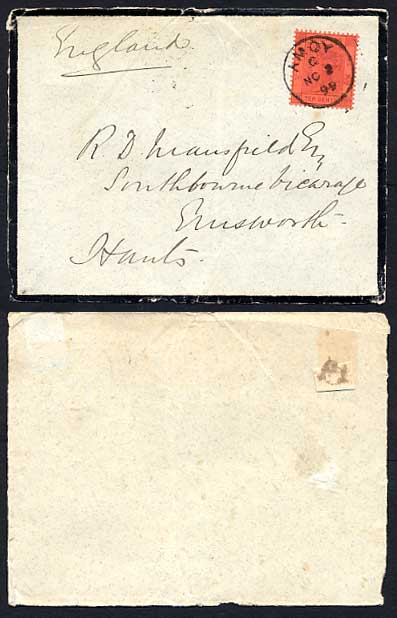 England
AMOY
C
NO 2
99
TEN CENTS
R. D. Mansfield Esq
Southbourne Vicarage
Emsworth
Hants.